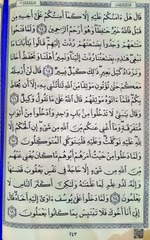 قَالَ هَلْ ءَامَنُكُمْ عَلَيْهِ إِلَّا كَمَآ أَمِنتُكُمْ عَلَىٰٓ أَخِيهِ مِن
قَبْلُ فَٱللَّهُ خَيْرٌ حَٰفِظًا وَهُوَ أَرْحَمُ ٱلرَّٰحِمِينَ ٦٤ وَلَمَّا فَتَحُوا۟
مَتَٰعَهُمْ وَجَدُوا۟ بِضَٰعَتَهُمْ رُدَّتْ إِلَيْهِمْ قَالُوا۟ يَٰٓأَبَانَا مَا
نَبْغِى هَٰذِهِۦ بِضَٰعَتُنَا رُدَّتْ إِلَيْنَا وَنَمِيرُ أَهْلَنَا وَنَحْفَظُ أَخَانَا
وَنَزْدَادُ كَيْلَ بَعِيرٍ ذَٰلِكَ كَيْلٌ يَسِيرٌ ٦٥ قَالَ لَنْ أُرْسِلَهُۥ
مَعَكُمْ حَتَّىٰ تُؤْتُونِ مَوْثِقًا مِّنَ ٱللَّهِ لَتَأْتُنَّنِى بِهِۦٓ إِلَّآ أَن يُحَاطَ
بِكُمْ فَلَمَّآ ءَاتَوْهُ مَوْثِقَهُمْ قَالَ ٱللَّهُ عَلَىٰ مَا نَقُولُ وَكِيلٌ ٦٦
وَقَالَ يَٰبَنِىَّ لَا تَدْخُلُوا۟ مِنۢ بَابٍ وَٰحِدٍ وَٱدْخُلُوا۟ مِنْ أَبْوَٰبٍ
مُّتَفَرِّقَةٍ وَمَآ أُغْنِى عَنكُم مِّنَ ٱللَّهِ مِن شَىْءٍ إِنِ ٱلْحُكْمُ إِلَّا
لِلَّهِ عَلَيْهِ تَوَكَّلْتُ وَعَلَيْهِ فَلْيَتَوَكَّلِ ٱلْمُتَوَكِّلُونَ ٦٧
وَلَمَّا دَخَلُوا۟ مِنْ حَيْثُ أَمَرَهُمْ أَبُوهُم مَّا كَانَ يُغْنِى عَنْهُم
مِّنَ ٱللَّهِ مِن شَىْءٍ إِلَّا حَاجَةً فِى نَفْسِ يَعْقُوبَ قَضَىٰهَا
وَإِنَّهُۥ لَذُو عِلْمٍ لِّمَا عَلَّمْنَٰهُ وَلَٰكِنَّ أَكْثَرَ ٱلنَّاسِ لَا
يَعْلَمُونَ ٦٨ وَلَمَّا دَخَلُوا۟ عَلَىٰ يُوسُفَ ءَاوَىٰٓ إِلَيْهِ أَخَاهُ قَالَ
إِنِّىٓ أَنَا۠ أَخُوكَ فَلَا تَبْتَئِسْ بِمَا كَانُوا۟ يَعْمَلُونَ ٦٩
٢٤٣